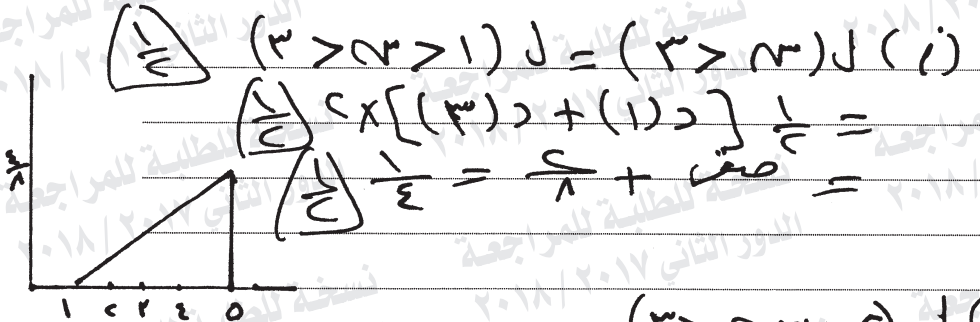 (i) ل (س < ٣) = ل (١ < س < ٣) ١/٢
= ١/٢ [د(١) + د(٣)] × ٢ ١/٢
= صفر + ٢/٨ = ١/٤ ١/٢
٤/٨
١ ٢ ٣ ٤ ٥
نسخة للطلبة للمراجعة
الدور الثاني ٢٠١٧ / ٢٠١٨